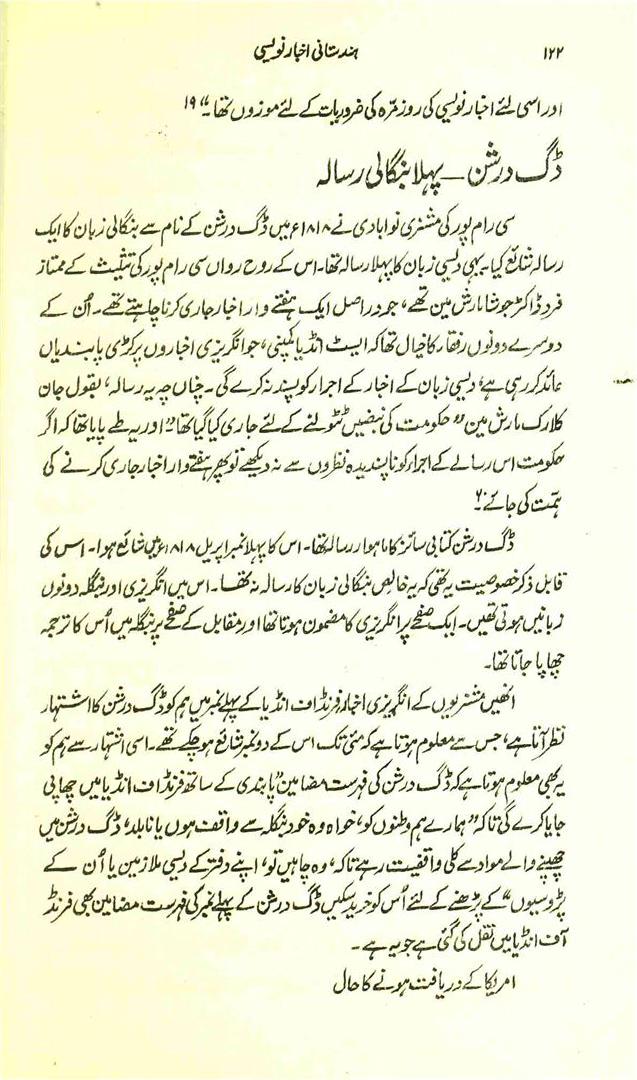 ۱۲۲
ہندستانی اخبار نویسی
اور اسی لئے اخبار نویسی کی روز مرّہ کی ضروریات کے لئے موزوں تھا۔“ ۱۹
ڈگ درشن ـ پہلا بنگالی رسالہ
سی رام پور کی مشنری نوابادی نے ۱۸۱۸ء میں ڈگ درشن کے نام سے بنگالی زبان کا ایک
رسالہ شائع کیا۔ یہی دیسی زبان کا پہلا رسالہ تھا۔ اس کے روح رواں سی رام پور کی تثلیث کے ممتاز
فرد ڈاکٹر جوشا مارش مین تھے، جو در اصل ایک ہفتے وار اخبار جاری کرنا چاہتے تھے۔ اُن کے
دوسرے دونوں رفقار کا خیال تھا کہ ایسٹ انڈیا کمپنی، جو انگریزی اخباروں پر کڑی پابندیاں
عائد کر رہی ہے، دیسی زبان کے اخبار کے اجرار کو پسند نہ کرے گی۔ چناں چہ یہ رسالہ، بقول جان
کلارک مارش مین ”حکومت کی نبضیں ٹٹولنے کے لئے جاری کیا گیا تھا“ اور یہ طے پایا تھا کہ اگر
حکومت اس رسالے کے اجرار کو ناپسندیدہ نظروں سے نہ دیکھے تو پھر ہفتے وار اخبار جاری کرنے کی
ہمّت کی جائے۔
ڈگ درشن کتابی سائز کا ماہوار رسالہ تھا۔ اس کا پہلا نمبر اپریل ۱۸۱۸ء میں شائع ہوا۔ اس کی
قابل ذکر خصوصیت یہ تھی کہ یہ خالص بنگالی زبان کا رسالہ نہ تھا۔ اس میں انگریزی اور بنگلہ دونوں
زبانیں ہوتی تھیں۔ ایک صفحے پر انگریزی کا مضمون ہوتا تھا اور مقابل کے صفحے پر بنگلہ میں اُس کا ترجمہ
چھاپا جاتا تھا۔
انھیں مشنریوں کے انگریزی اخبار فرنڈ اف انڈیا کے پہلے نمبر میں ہم کو ڈگ درشن کا اشتہار
نظر آتا ہے، جس سے معلوم ہوتا ہے کہ مئی تک اس کے دو نمبر شائع ہو چکے تھے۔ اسی اشتہار سے ہم کو
یہ بھی معلوم ہوتا ہے کہ ڈگ درشن کی فہرست مضامین ”پابندی کے ساتھ فرنڈ اف انڈیا میں چھاپی
جایا کرے گی تاکہ ”ہمارے ہم وطنوں کو، خواہ وہ خود بنگلہ سے واقف ہوں یا نابلد، ڈگ درشن میں
چھپنے والے مواد سے کلی واقفیت رہے تاکہ، وہ چاہیں تو، اپنے دفتر کے دیسی ملازمین یا اُن کے
پڑوسیوں“ کے پڑھنے کے لئے اُس کو خرید سکیں ڈگ درشن کے پہلے نمبر کی فہرست مضامین بھی فرنڈ
آف انڈیا میں نقل کی گئی ہے جو یہ ہے۔
امریکا کے دریافت ہونے کا حال